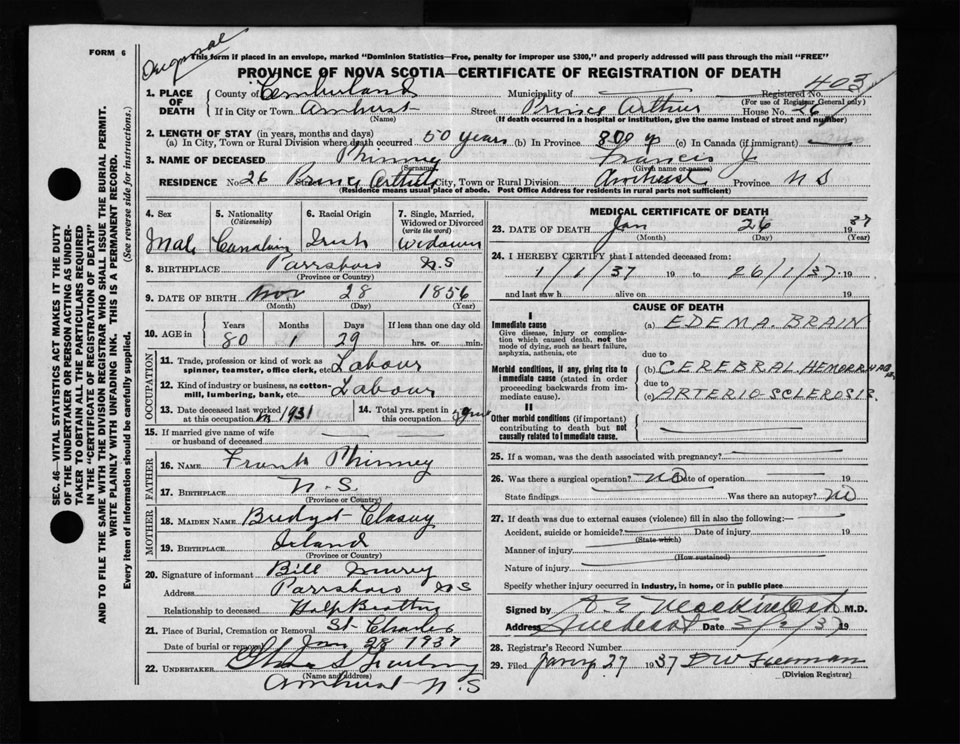 FORM 6
Original
This form if placed in an envelope, marked "Dominion Statistics—Free, penalty for improper use $300," and properly addressed will pass through the mail "FREE"
PROVINCE OF NOVA SCOTIA—CERTIFICATE OF REGISTRATION OF DEATH
403
1. PLACE OF DEATH County of Cumberland Municipality of Registered No.
(For use of Registrar General only)
If in City or Town Amherst Street Prince Arthur House No. 26
(Name) (If death occurred in a hospital or institution, give the name instead of street and number)
2. LENGTH OF STAY (in years, months and days)
(a) In City, Town or Rural Division where death occurred 50 years (b) In Province 80 y (c) In Canada (if immigrant)
3. NAME OF DECEASED Phinney Francis J
(Surname) (Given name or names)
RESIDENCE No. 26 Prince Arthur City, Town or Rural Division Amherst Province N S
(Residence means usual place of abode. Post Office Address for residents in rural parts not sufficient)
4. Sex 5. Nationality (Citizenship) 6. Racial Origin 7. Single, Married, Widowed or Divorced (write the word)
Male Canadian Irish Widower
8. BIRTHPLACE Parrsboro N.S
(Province or Country)
9. DATE OF BIRTH Nov 28 1856
(Month) (Day) (Year)
10. AGE in Years Months Days If less than one day old
80 1 29 hrs. or min.
OCCUPATION
11. Trade, profession or kind of work as spinner, teamster, office clerk, etc. Labour
12. Kind of industry or business, as cotton-mill, lumbering, bank, etc. Labour
13. Date deceased last worked at this occupation in 1931 14. Total yrs. spent in this occupation
15. If married give name of wife or husband of deceased
FATHER
16. NAME Frank Phinney
17. BIRTHPLACE N.S.
(Province or Country)
MOTHER
18. MAIDEN NAME Bridget
19. BIRTHPLACE Ireland
(Province or Country)
20. Signature of informant Bill
Address Parrsboro N S
Relationship to deceased Half
21. Place of Burial, Cremation or Removal St Charles
Date of burial or removal Jan 28 1937
22. UNDERTAKER
(Name and address)
Amherst N.S
MEDICAL CERTIFICATE OF DEATH
23. DATE OF DEATH Jan 26 1937
(Month) (Day) (Year)
24. I HEREBY CERTIFY that I attended deceased from:
1/1/37 19 to 26/1/37 19
and last saw h alive on 19
CAUSE OF DEATH
I
Immediate cause
Give disease, injury or complication which caused death, not the mode of dying, such as heart failure, asphyxia, asthenia, etc
(a) EDEMA. BRAIN
due to
Morbid conditions, if any, giving rise to immediate cause (stated in order proceeding backwards from immediate).
(b) CEREBRAL HEMORRHAGE
due to
(c) ARTERIO-SCLEROSIS.
II
Other morbid conditions (if important) contributing to death but not causally related to immediate cause.
25. If a woman, was the death associated with pregnancy?
26. Was there a surgical operation? no Date of operation 19
State findings Was there an autopsy? no
27. If death was due to external causes (violence) fill in also the following:
Accident, suicide or homicide? Date of injury 19
(State which)
Manner of injury
(How sustained)
Nature of injury
Specify whether injury occurred in industry, in home, or in public place
Signed by A E Mackintosh M.D.
Address Amherst Date 3/2/37 19
28. Registrar's Record Number
29. Filed Jany 27 1937 DW Freeman
(Division Registrar)
SEC. 46—VITAL STATISTICS ACT MAKES IT THE DUTY
OF THE UNDERTAKER OR PERSON ACTING AS UNDER-
TAKER TO OBTAIN ALL THE PARTICULARS REQUIRED
IN THE "CERTIFICATE OF REGISTRATION OF DEATH"
AND TO FILE THE SAME WITH THE DIVISION REGISTRAR WHO SHALL ISSUE THE BURIAL PERMIT.
WRITE PLAINLY WITH UNFADING INK. THIS IS A PERMANENT RECORD.
Every item of information should be carefully supplied. (See reverse side for instructions.)